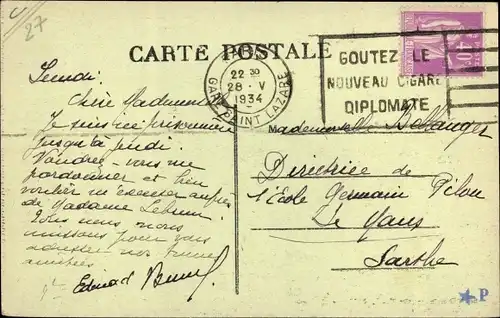 27
CARTE POSTALE
22 30
28 · V
1934
GARE SAINT LAZARE
GOUTEZ LE
NOUVEAU CIGARE
DIPLOMATE
40
Lundi
Chère Mademoiselle
Je suis ici
jusqu'à jeudi.
Voudrez-vous me
pardonner et bien
vouloir m'excuser auprès
de Madame Lebrun.
nous
pour vous
adresser nos bonnes
amitiés
Mademoiselle Bellanger
Directrice de
l'École Germain Pilon
Le Mans
Sarthe
P